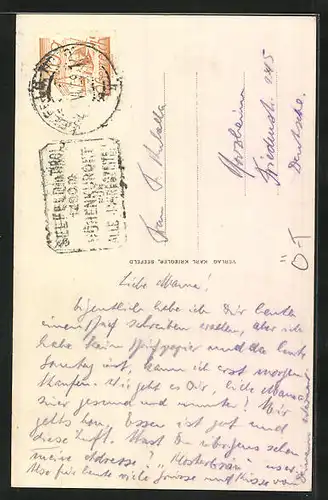 SEEFELD IN TIROL
1200 m
HÖHENKURORT
FÜR
ALLE JAHRESZEITEN
Frau F.
Pforzheim
245
Deutschl.
VERLAG KARL KRIEGLER, SEEFELD
Ö-T
Liebe Mama!
Eigentlich habe ich Dir heute
einen Brief schreiben wollen, aber ich
habe kein Briefpapier und da heute
Sonntag ist, kann ich erst morgen
kaufen. Wie geht es Dir, liebe Mama
gesund und munter? Mir
gehts Essen ist gut und
diese Luft. Hast Du übrigens schon
meine Adresse? "Klosterbräu" usw.
Also für heute viele Grüsse und Küsse von